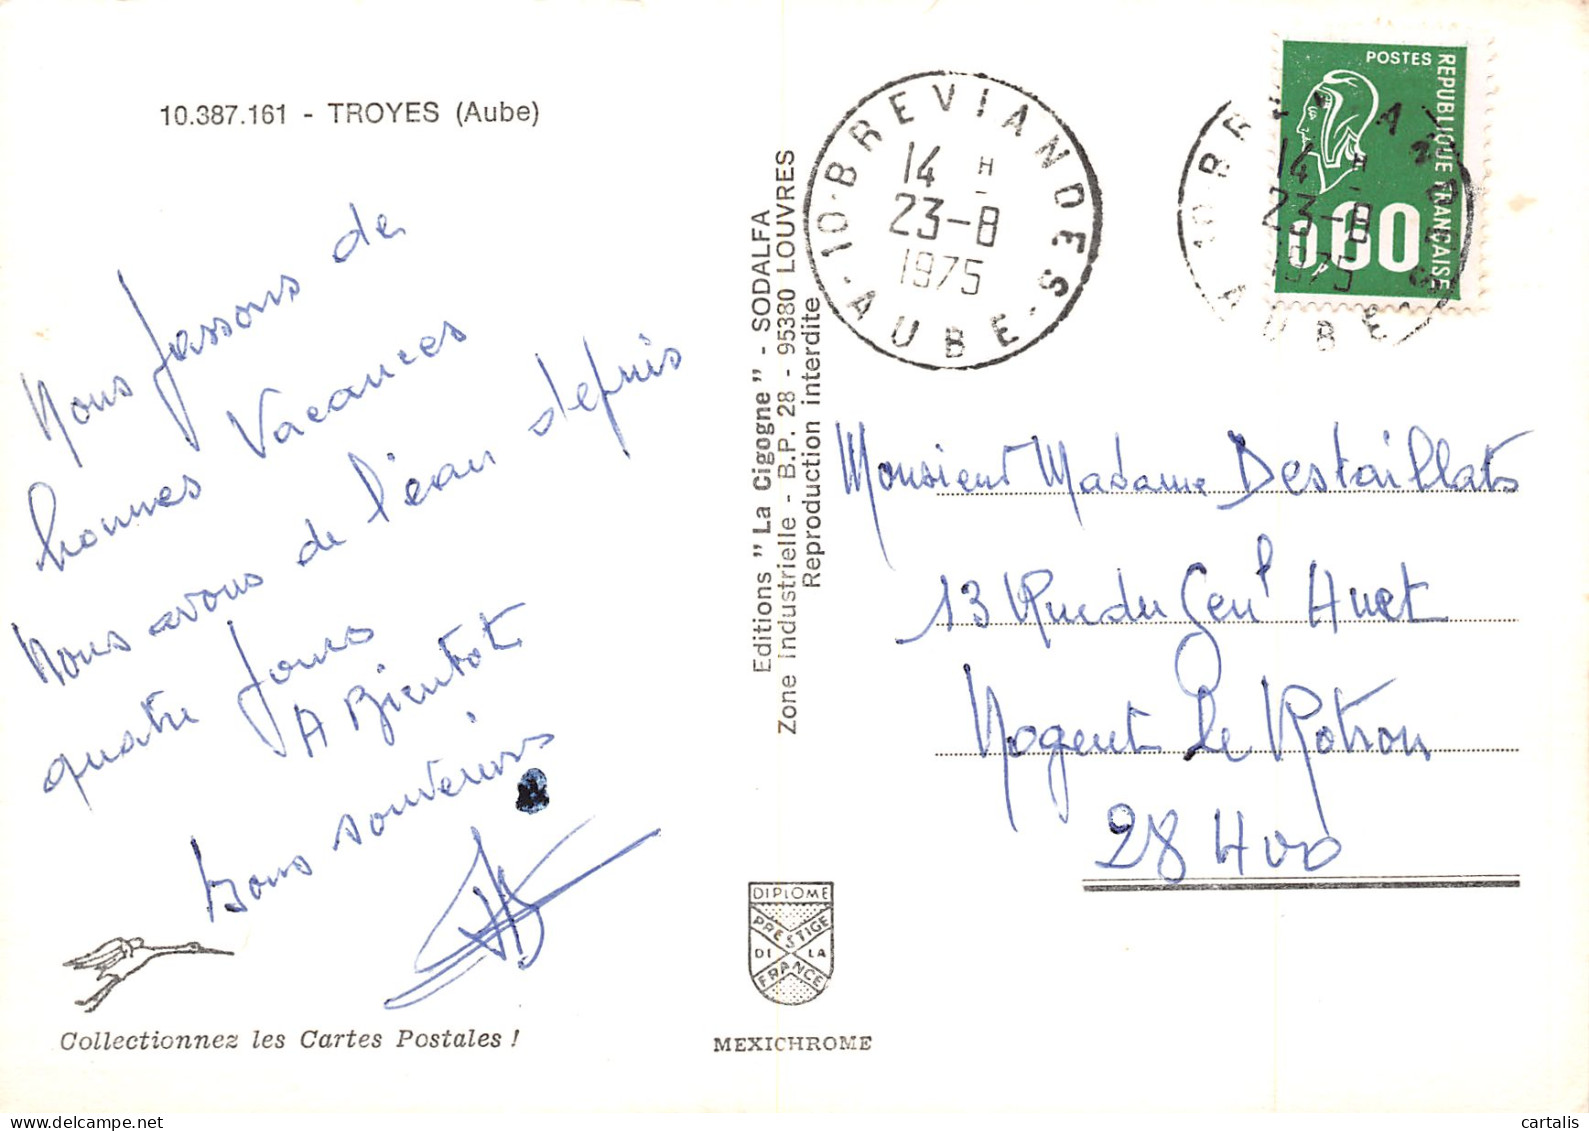 10.387.161 - TROYES (Aube)
Nous passons de
bonnes Vacances
Nous avons de l'eau depuis
quatre jours
A Bientôt
bons souvenirs
Collectionnez les Cartes Postales !
Editions " La Cigogne " - SODALFA
Zone Industrielle - B.P. 28 - 95380 LOUVRES
Reproduction interdite
DIPLOME
PRESTIGE
DI LA
FRANCE
MEXICHROME
10 - BREVIANDES - AUBE -
14 H
23-8
1975
POSTES
REPUBLIQUE FRANÇAISE
0,60
10 BREVIANDES
AUBE
14 H
23-8
1975
Monsieur Madame Destaillats
13 Rue du Genl Huet
Nogent Le Rotrou
28400
cartalis